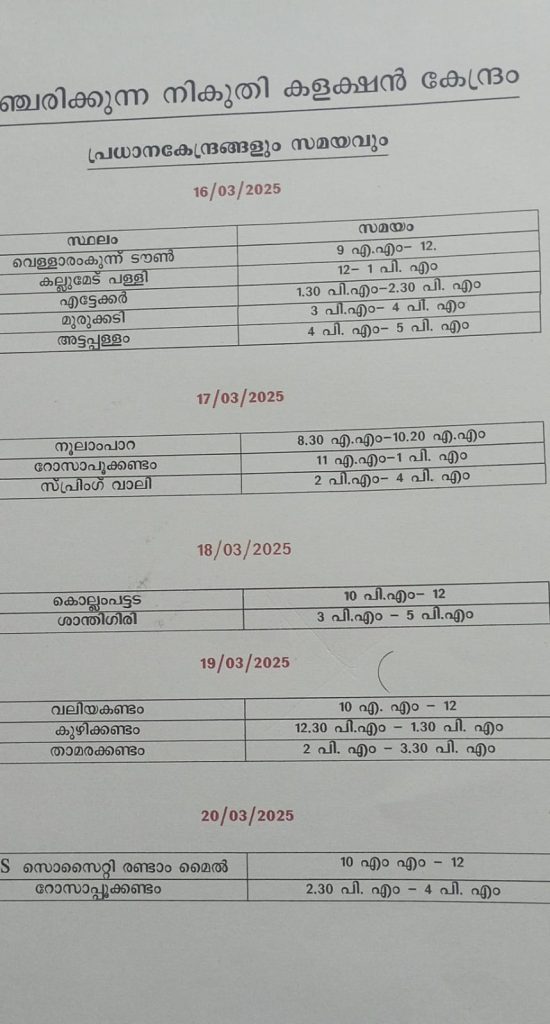 ഞ്ചരിക്കുന്ന നികുതി കളക്ഷൻ കേന്ദ്രം
പ്രധാനകേന്ദ്രങ്ങളും സമയവും
16/03/2025
സ്ഥലം സമയം
വെള്ളാരംകുന്ന് ടൗൺ 9 എ.എം- 12.
കല്ലുമേട് പള്ളി 12- 1 പി. എം
എട്ടേക്കർ 1.30 പി.എം-2.30 പി. എം
മുരുക്കടി 3 പി.എം- 4 പി. എം
അട്ടപ്പള്ളം 4 പി. എം- 5 പി. എം
17/03/2025
നൂലാംപാറ 8.30 എ.എം-10.20 എ.എം
റോസാപൂക്കണ്ടം 11 എ.എം-1 പി. എം
സ്പ്രിംഗ് വാലി 2 പി.എം- 4 പി. എം
18/03/2025
കൊല്ലംപട്ടട 10 പി.എം- 12
ശാന്തിഗിരി 3 പി.എം - 5 പി.എം
19/03/2025
വലിയകണ്ടം 10 എ. എം - 12
കുഴിക്കണ്ടം 12.30 പി.എം - 1.30 പി. എം
താമരക്കണ്ടം 2 പി. എം - 3.30 പി. എം
20/03/2025
S സൊസൈറ്റി രണ്ടാം മൈൽ 10 എം എം - 12
റോസാപ്പൂക്കണ്ടം 2.30 പി. എം - 4 പി. എം